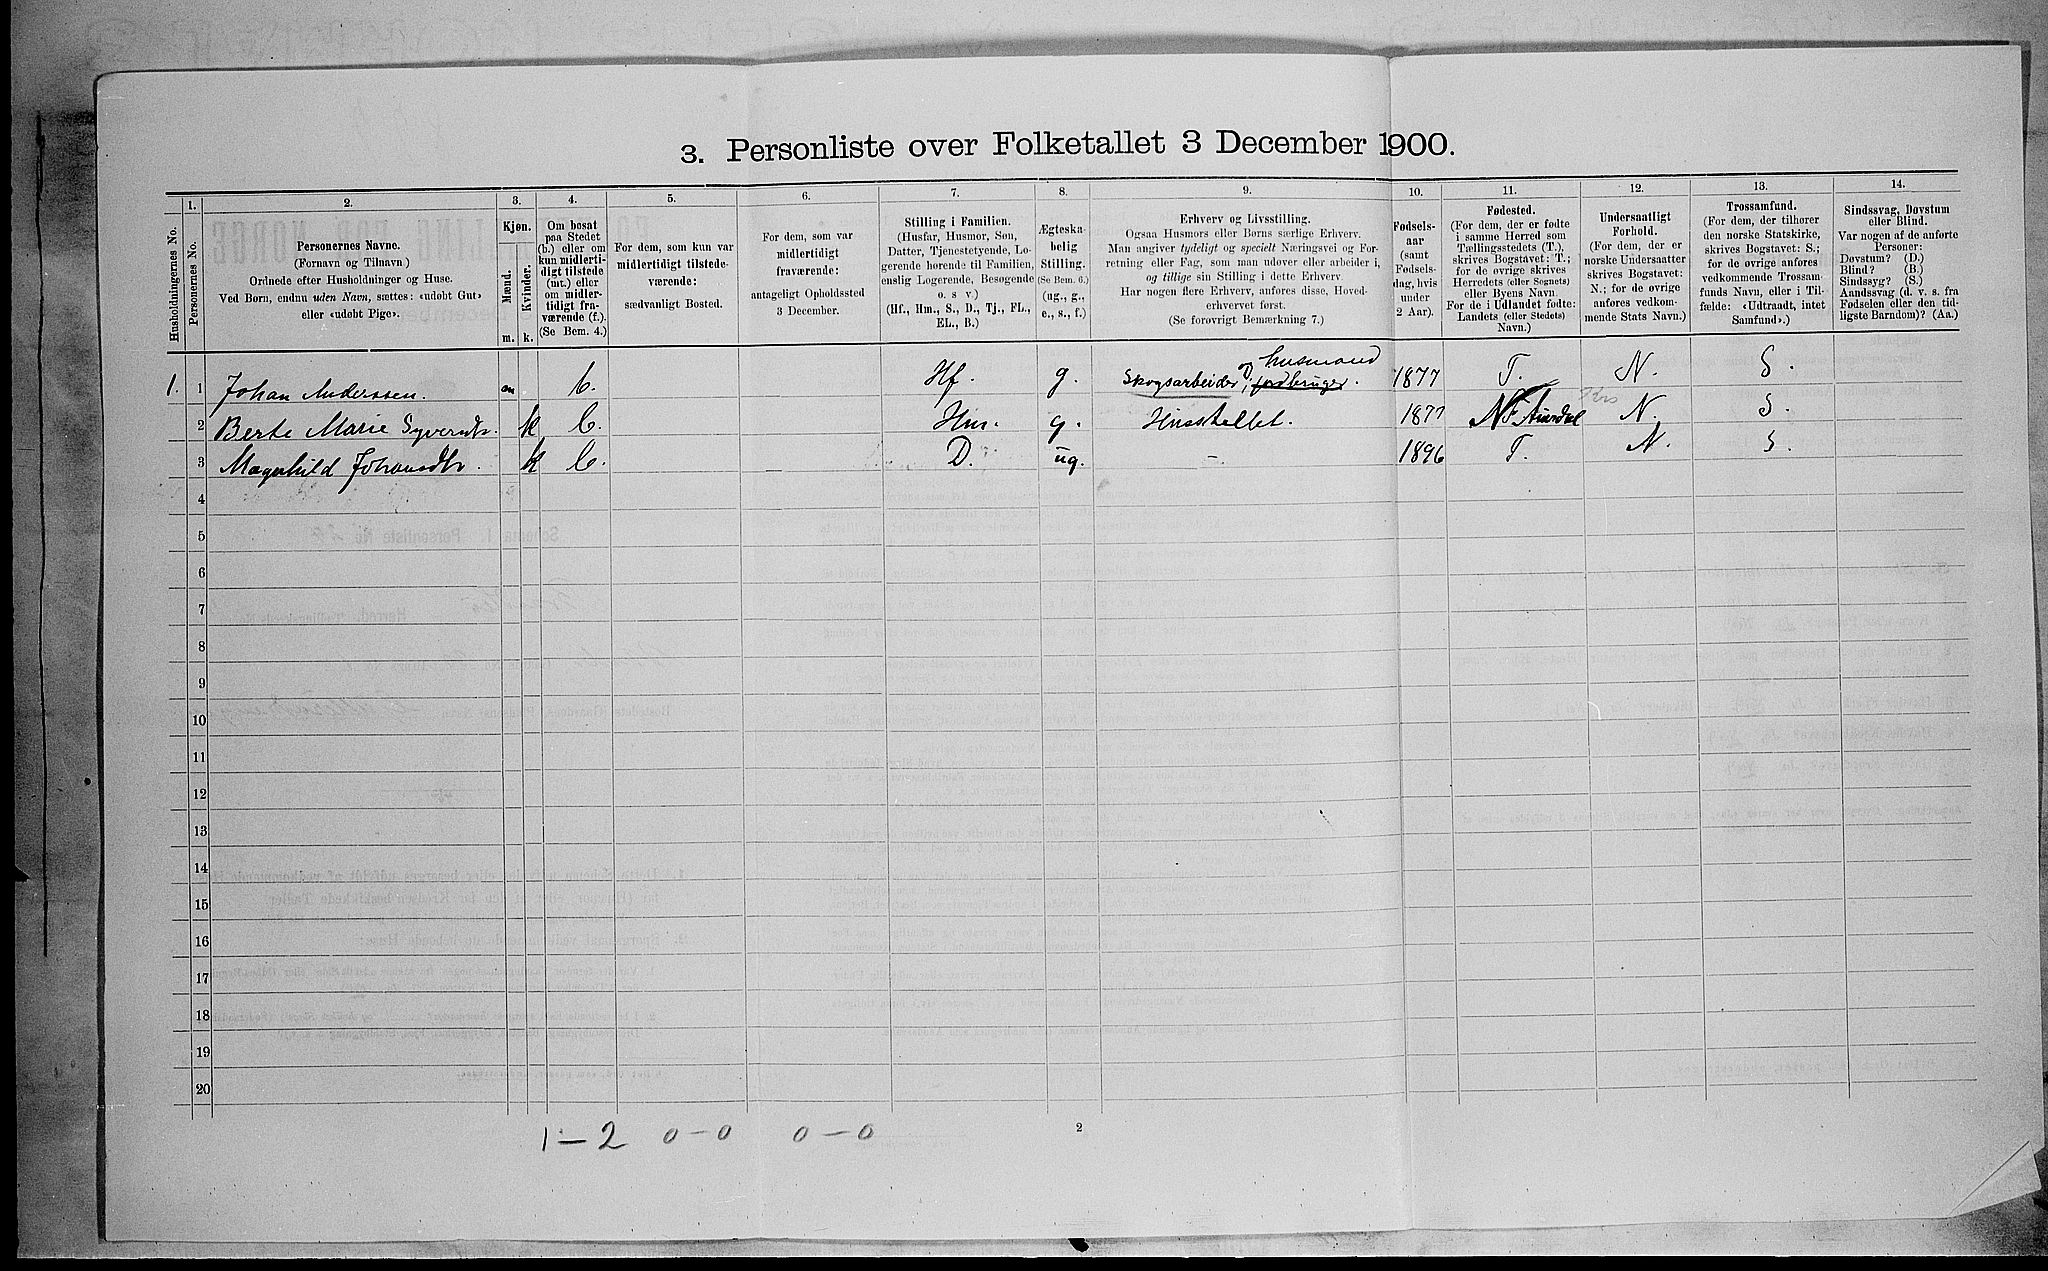 3. Personliste over Folketallet 3 December 1900.
1. 2. 3. 4. 5. 6. 7. 8. 9. 10. 11. 12. 13. 14.
Husholdningernes No.
Personernes No.
Personernes Navne.
(Fornavn og Tilnavn.)
Ordnede efter Husholdninger og Huse.
Ved Børn, endnu uden Navn, sættes: «udøbt Gut»
eller «udøbt Pige».
Kjøn.
Mænd.
Kvinder.
m. k.
Om bosat
paa Stedet
(b.) eller om
kun midlerti-
digt tilstede
(mt.) eller
om midler-
tidigt fra-
værende (f.).
(Se Bem. 4.)
For dem, som kun var
midlertidigt tilstede-
værende:
sædvanligt Bosted.
For dem, som var
midlertidigt
fraværende:
antageligt Opholdssted
3 December.
Stilling i Familien.
(Husfar, Husmor, Søn,
Datter, Tjenestetyende, Lo-
gerende hørende til Familien,
enslig Logerende, Besøgende
o. s. v.)
(Hf., Hm., S., D., Tj., FL.,
EL., B.)
Ægteska-
belig
Stilling.
(Se Bem. 6.)
(ug., g.,
e., s., f.)
Erhverv og Livsstilling.
Ogsaa Husmors eller Børns særlige Erhverv.
Man angiver tydeligt og specielt Næringsvei og For-
retning eller Fag, som man udøver eller arbeider i,
og tillige sin Stilling i dette Erhverv.
Har nogen flere Erhverv, anføres disse, Hoved-
erhvervet først.
(Se forøvrigt Bemærkning 7.)
Fødsels-
aar
(samt
Fødsels-
dag, hvis
under
2 Aar).
Fødested.
(For dem, der er fødte
i samme Herred som
Tællingsstedets (T.),
skrives Bogstavet: T.;
for de øvrige skrives
Herredets (eller Sognets)
eller Byens Navn.
For de i Udlandet fødte:
Landets (eller Stedets)
Navn.)
Undersaatligt
Forhold.
(For dem, der er
norske Undersaatter
skrives Bogstavet:
N.; for de øvrige
anføres vedkom-
mende Stats Navn.)
Trossamfund.
(For dem, der tilhører
den norske Statskirke,
skrives Bogstavet: S.;
for de øvrige anføres
vedkommende Trossam-
funds Navn, eller i Til-
fælde: «Udtraadt, intet
Samfund».)
Sindssvag, Døvstum
eller Blind.
Var nogen af de anførte
Personer:
Døvstum? (D.)
Blind? (B.)
Sindssyg? (S.)
Aandssvag (d. v. s. fra
Fødselen eller den tid-
ligste Barndom)? (Aa.)
husmand
1. 1 Johan Anderssen. m b. Hf. g. Skogsarbeider, jordbruger. 1877 T. N. S.
2 Berte Marie Syverndt. k b. Hm. g. Husstellet. 1877 N. Aurdal N. S.
3 Magnhild Johansdtr. k b. D. ug. – 1896 T. N. S.
4
5
6
7
8
9
10
11
12
13
14
15
16
17
18
19
20
1 – 2 0 – 0 0 – 0
2